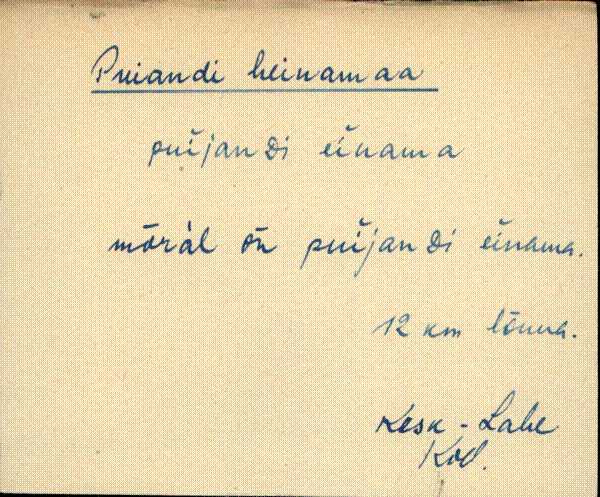 Puiandi heinamaa
puĭjanDi eĭnama
mōrál ōn puĭjanDi eĭnama.
12 km lõuna.
Kesk-Lahe
Kod.